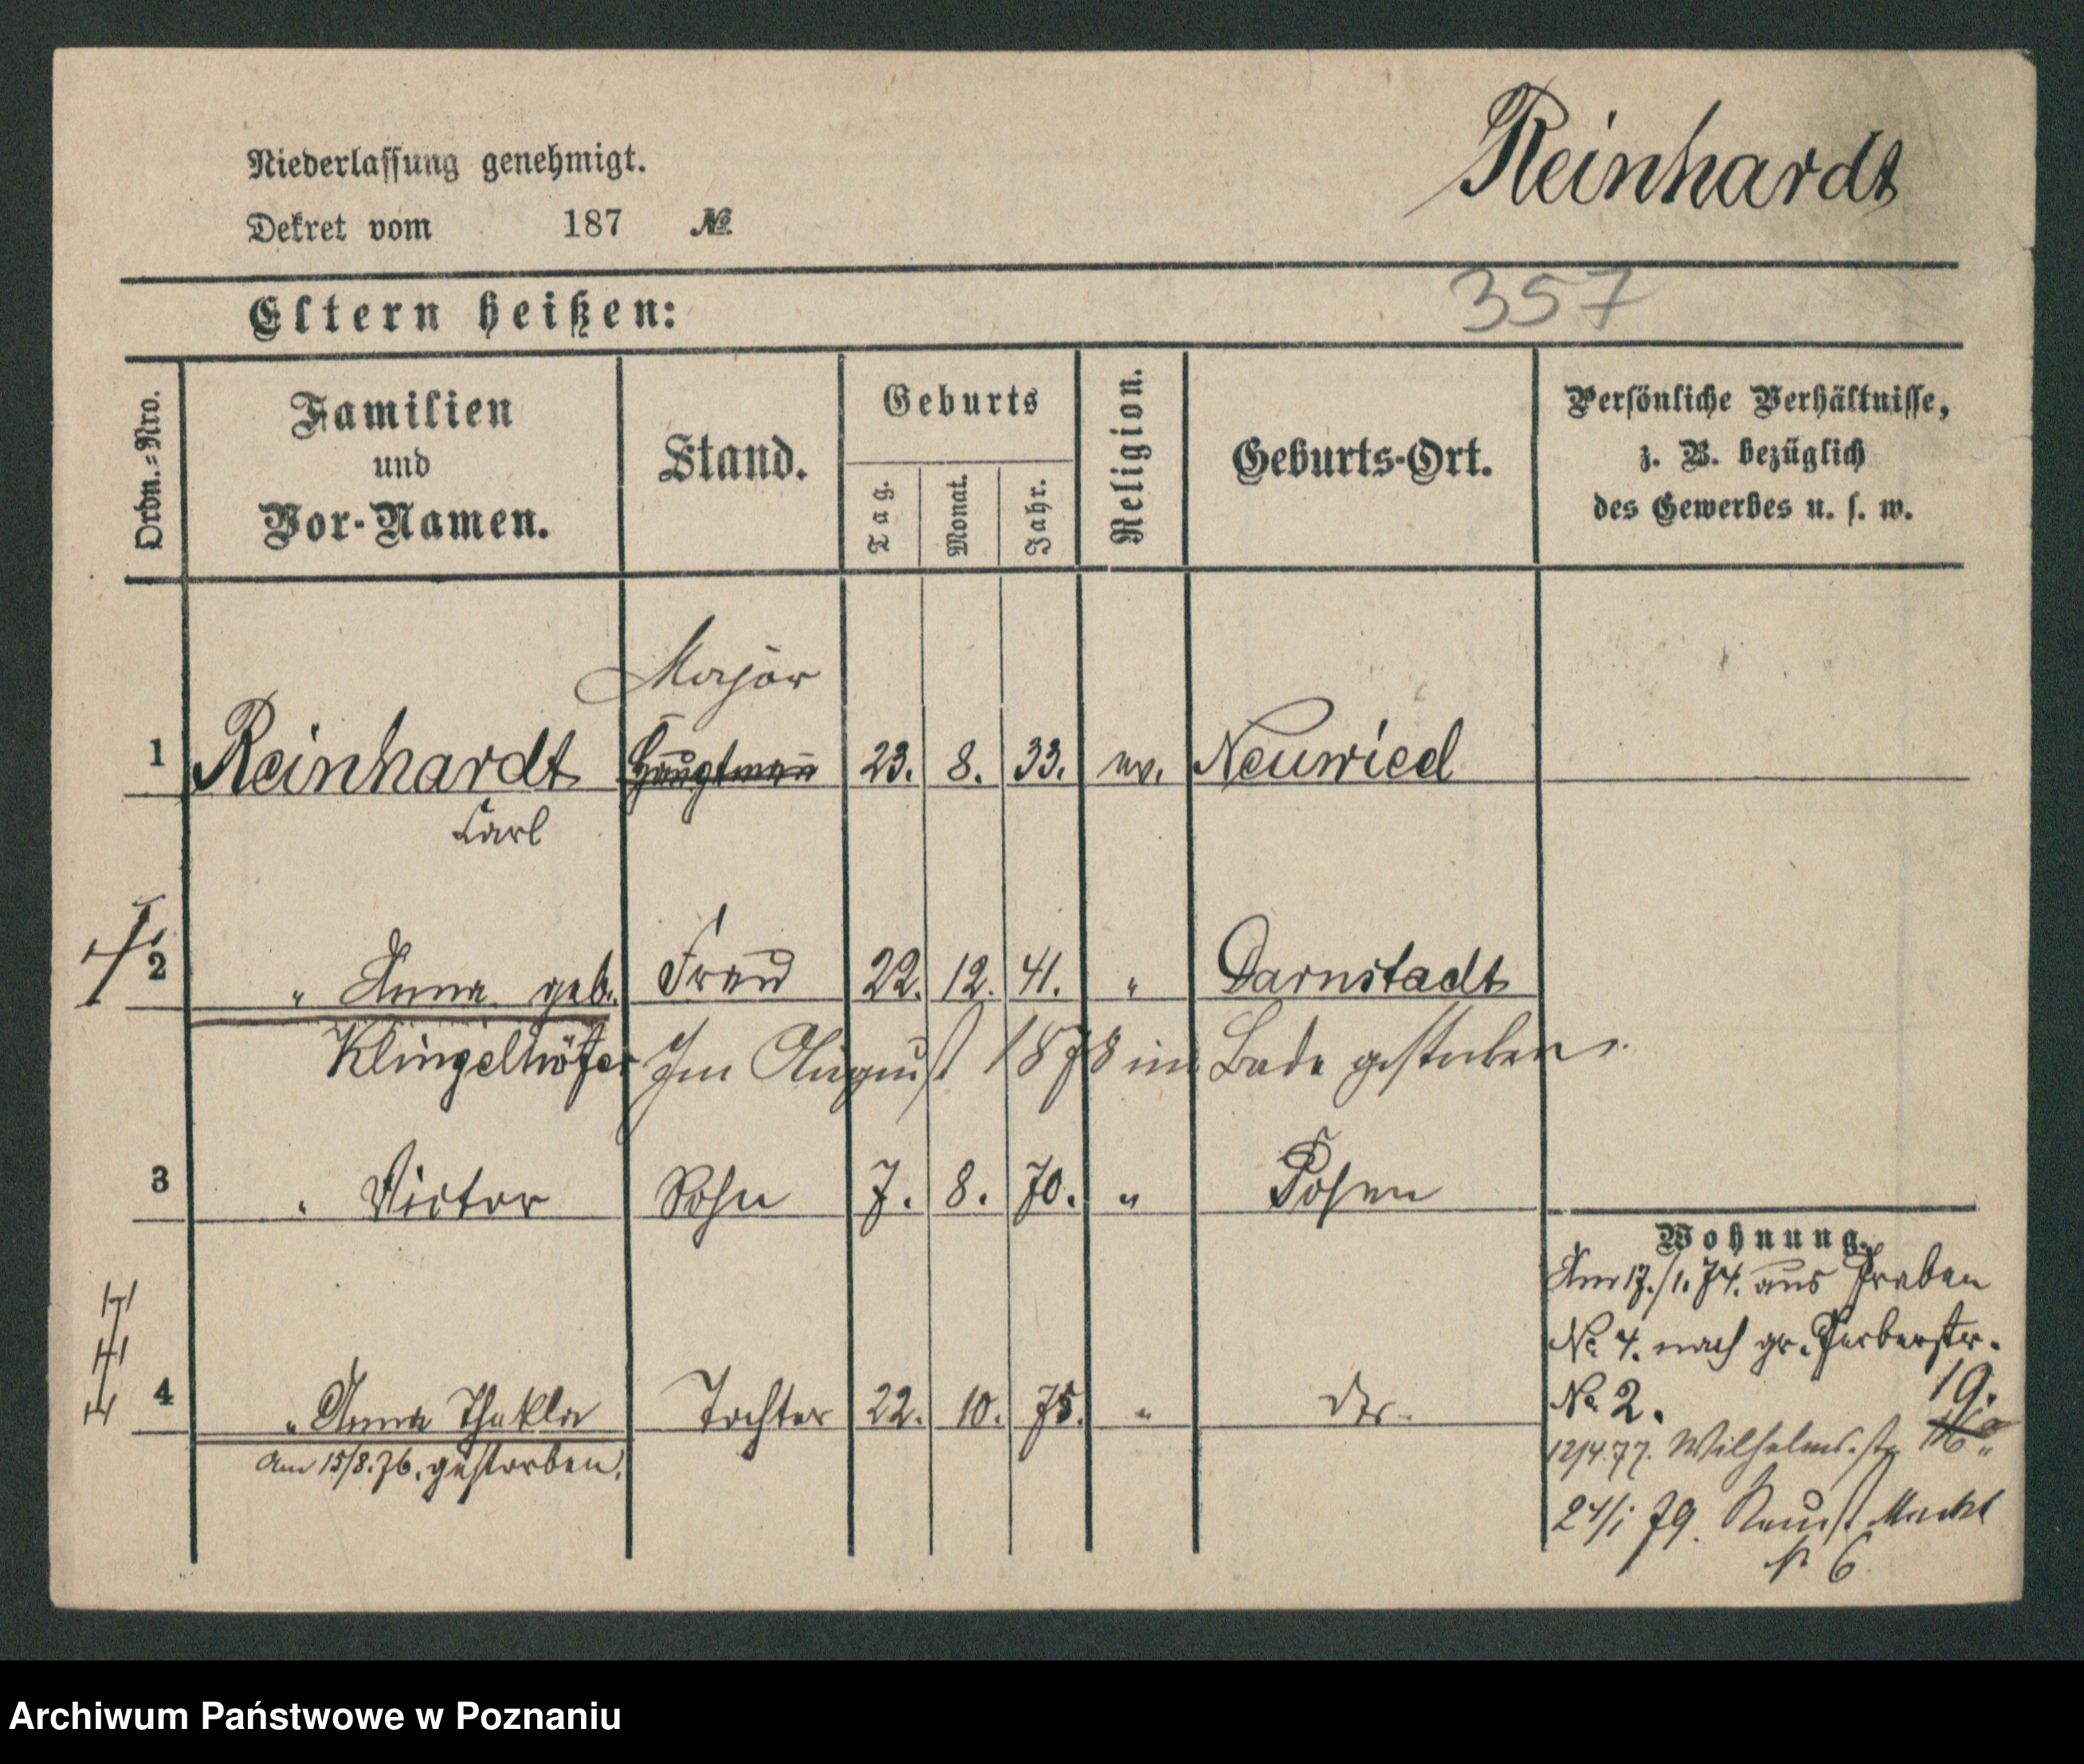 Reinhardt
Niederlassung genehmigt.
Dekret vom 187 №
357
Eltern heißen:
Ordn.=Nro.
Familien
und
Vor-Namen.
Stand.
Geburts
Tag.
Monat.
Jahr.
Religion.
Geburts-Ort.
Persönliche Verhältnisse,
z. B. bezüglich
des Gewerbes u. s. w.
Major
1 Reinhardt Hauptmann 23. 8. 33. ev. Neuwied
Carl
2 " Anna geb. Frau 22. 12. 41. " Darnstadt
Klingelhöfer Im August 1878 im Bade gestorben.
3 " Victor Sohn 7. 8. 70. " Posen
Wohnung.
Am 17./1. 74. aus Graben
No. 4. nach gr. Gerberstr.
No. 2. 19.
4 " Anna Thekla Tochter 22. 10. 75. "
12/4.77. Wilhelms-str. 16a
Am 15/8.76. gestorben.
24/1 79. Neust. Markt
№ 6
Archiwum Państwowe w Poznaniu